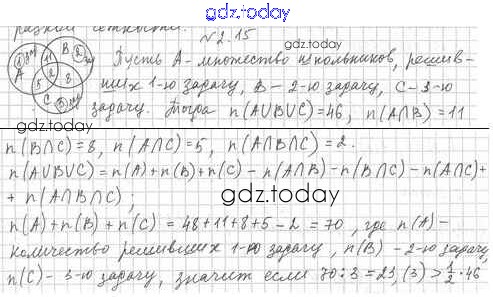 gdz.today
разной сетности.
№2.15
gdz.today
Пусть A - множество школьников, решив-
ших 1-ю задачу, B - 2-ю задачу, C - 3-ю
задачу. Тогда n(A∪B∪C)=46, n(A∩B)=11
A B C 11 2 5 8
gdz.today
n(B∩C)=8, n(A∩C)=5, n(A∩B∩C)=2.
n(A∪B∪C)=n(A)+n(B)+n(C)-n(A∩B)-n(B∩C)-n(A∩C)+
+n(A∩B∩C),
gdz.today
n(A)+n(B)+n(C)=48+11+8+5-2=70, где n(A)-
количество решивших 1-ю задачу, n(B) - 2-ю задачу,
n(C) - 3-ю задачу, значит если 70:3=23,(3)>1/2·46